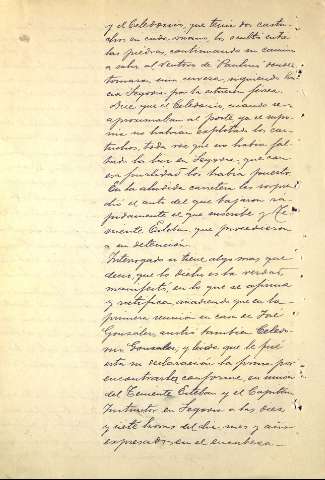 y el Celedonio, que tenia dos cartu-
chos en cada mano, los oculta entre
las piedras, continuando su camino
a salir al Ventoro de Paulino donde
tomaron una cerveza, siguiendo ha-
cia Segovia por la citación fiesa.
Dice que el Celedonio, cuando se
aproximaban al poste ya el supo-
nia no habian explotado los car-
tuchos, toda vez que no habia fal-
tado la luz en Segovia, que con
esa finalidad los habia puesto.
En la aludida carretera les sorpren-
dió el auto del que bajaron ra-
pidamente el que suscribe y Te-
niente Esteban que procedieron
a su detención.
Interrogado si tiene algo mas que
decir, que lo dicho es la verdad,
manifestó, en lo que se afirma
y ratifica, añadiendo que en la
primera reunion en casa de José
Gonzalez, asistió tambien Celedo-
nio Gonzalez, y leida que le fué
esta su declaración la firma por
encontrarla conforme, en union
del Teniente Esteban y el Capitan
Instructor en Segovia a las diez
y siete horas del dia mes y año
expresados en el encabeza-